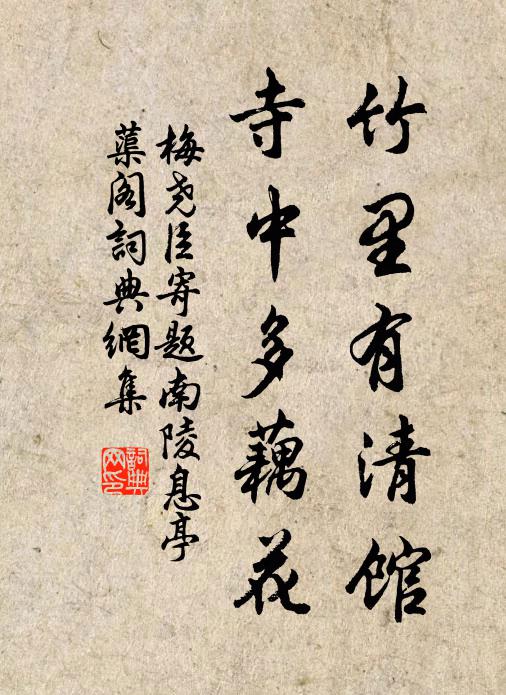 竹里有清馆
寺中多藕花
梅尧臣寄题南陵息亭
蕖阁詞典網集
詞典
网印